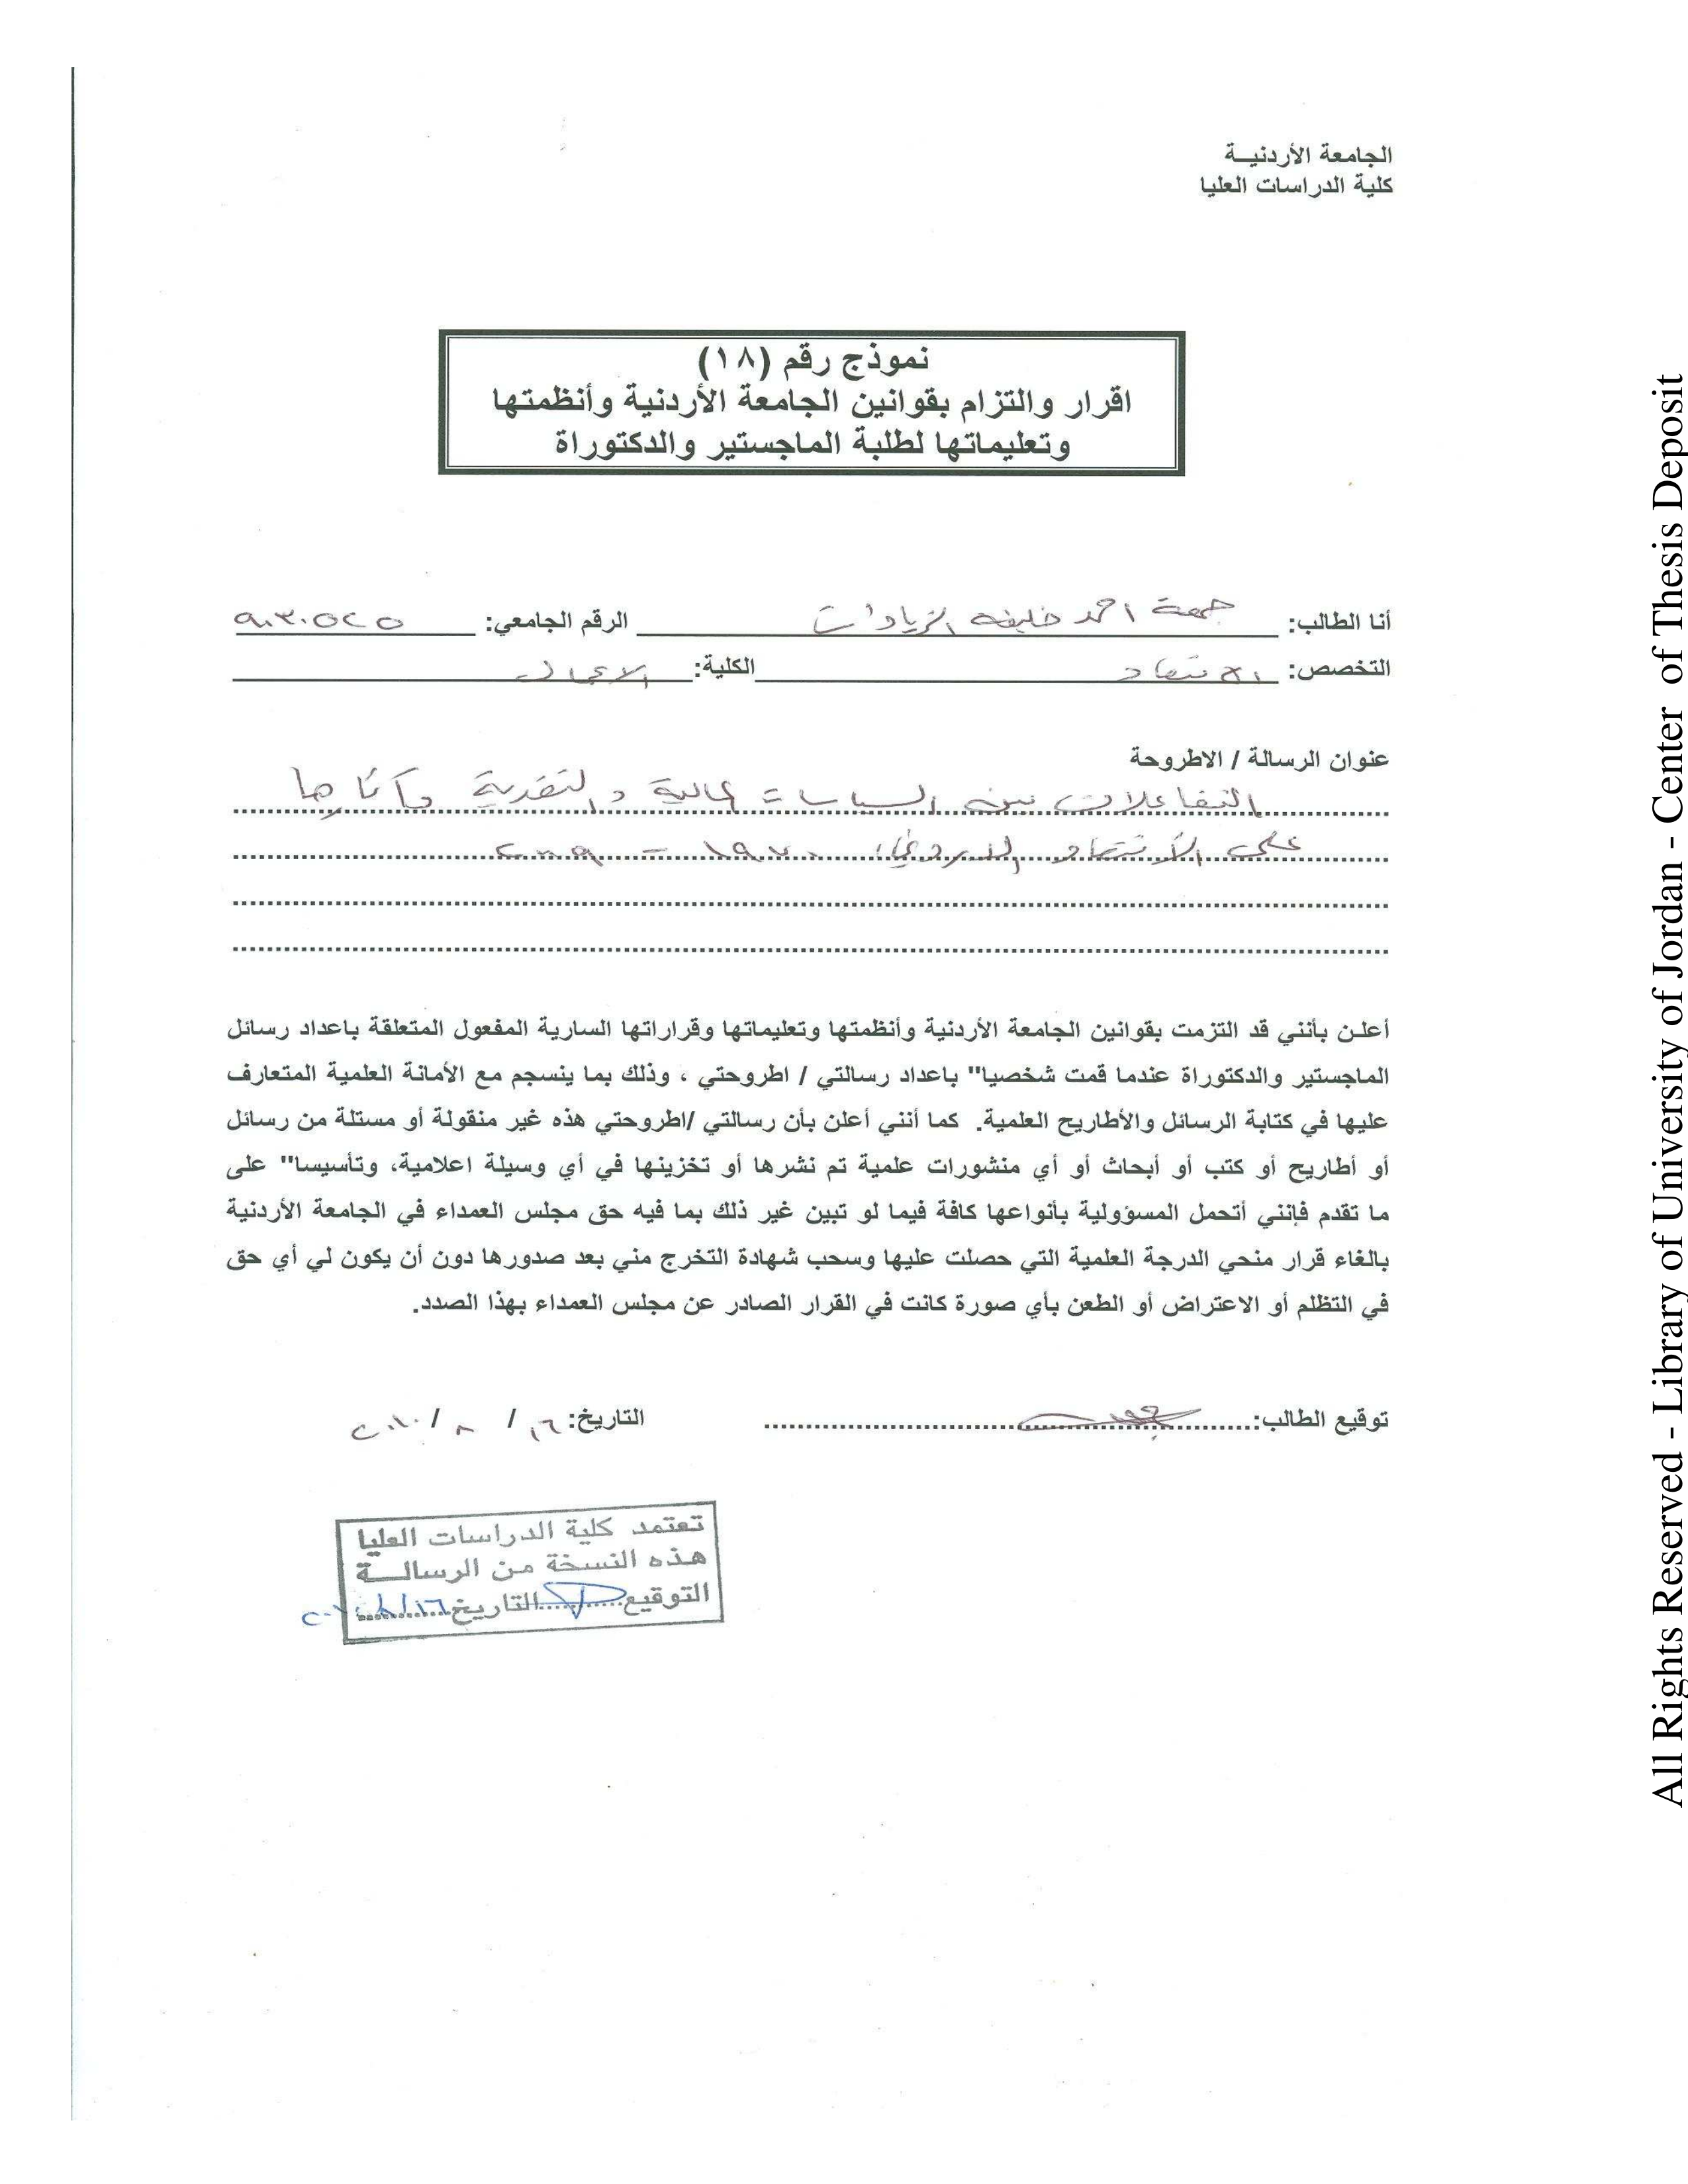 الجامعة الأردنيـة
كلية الدراسات العليا
نموذج رقم (١٨)
اقرار والتزام بقوانين الجامعة الأردنية وأنظمتها
وتعليماتها لطلبة الماجستير والدكتوراة
أنا الطالب: جمعة احمد خليفه الزيادات الرقم الجامعي: ٩٠٣٠٥٢٥
التخصص: الاقتصاد الكلية: الاعمال
عنوان الرسالة / الاطروحة
التفاعلات بين السياسات المالية والنقدية وآثارها
على الاقتصاد الاردني، ١٩٧٠ - ٢٠٠٩
أعلن بأنني قد التزمت بقوانين الجامعة الأردنية وأنظمتها وتعليماتها وقراراتها السارية المفعول المتعلقة باعداد رسائل
الماجستير والدكتوراة عندما قمت شخصيا" باعداد رسالتي / اطروحتي ، وذلك بما ينسجم مع الأمانة العلمية المتعارف
عليها في كتابة الرسائل والأطاريح العلمية. كما أنني أعلن بأن رسالتي /اطروحتي هذه غير منقولة أو مستلة من رسائل
أو أطاريح أو كتب أو أبحاث أو أي منشورات علمية تم نشرها أو تخزينها في أي وسيلة اعلامية، وتأسيسا" على
ما تقدم فإنني أتحمل المسؤولية بأنواعها كافة فيما لو تبين غير ذلك بما فيه حق مجلس العمداء في الجامعة الأردنية
بالغاء قرار منحي الدرجة العلمية التي حصلت عليها وسحب شهادة التخرج مني بعد صدورها دون أن يكون لي أي حق
في التظلم أو الاعتراض أو الطعن بأي صورة كانت في القرار الصادر عن مجلس العمداء بهذا الصدد.
توقيع الطالب: التاريخ: ١٦ / ٨ / ٢٠١٠
تعتمد كلية الدراسات العليا
هذه النسخة من الرسالـة
التوقيع التاريخ ١٦/٨
All Rights Reserved - Library of University of Jordan - Center of Thesis Deposit